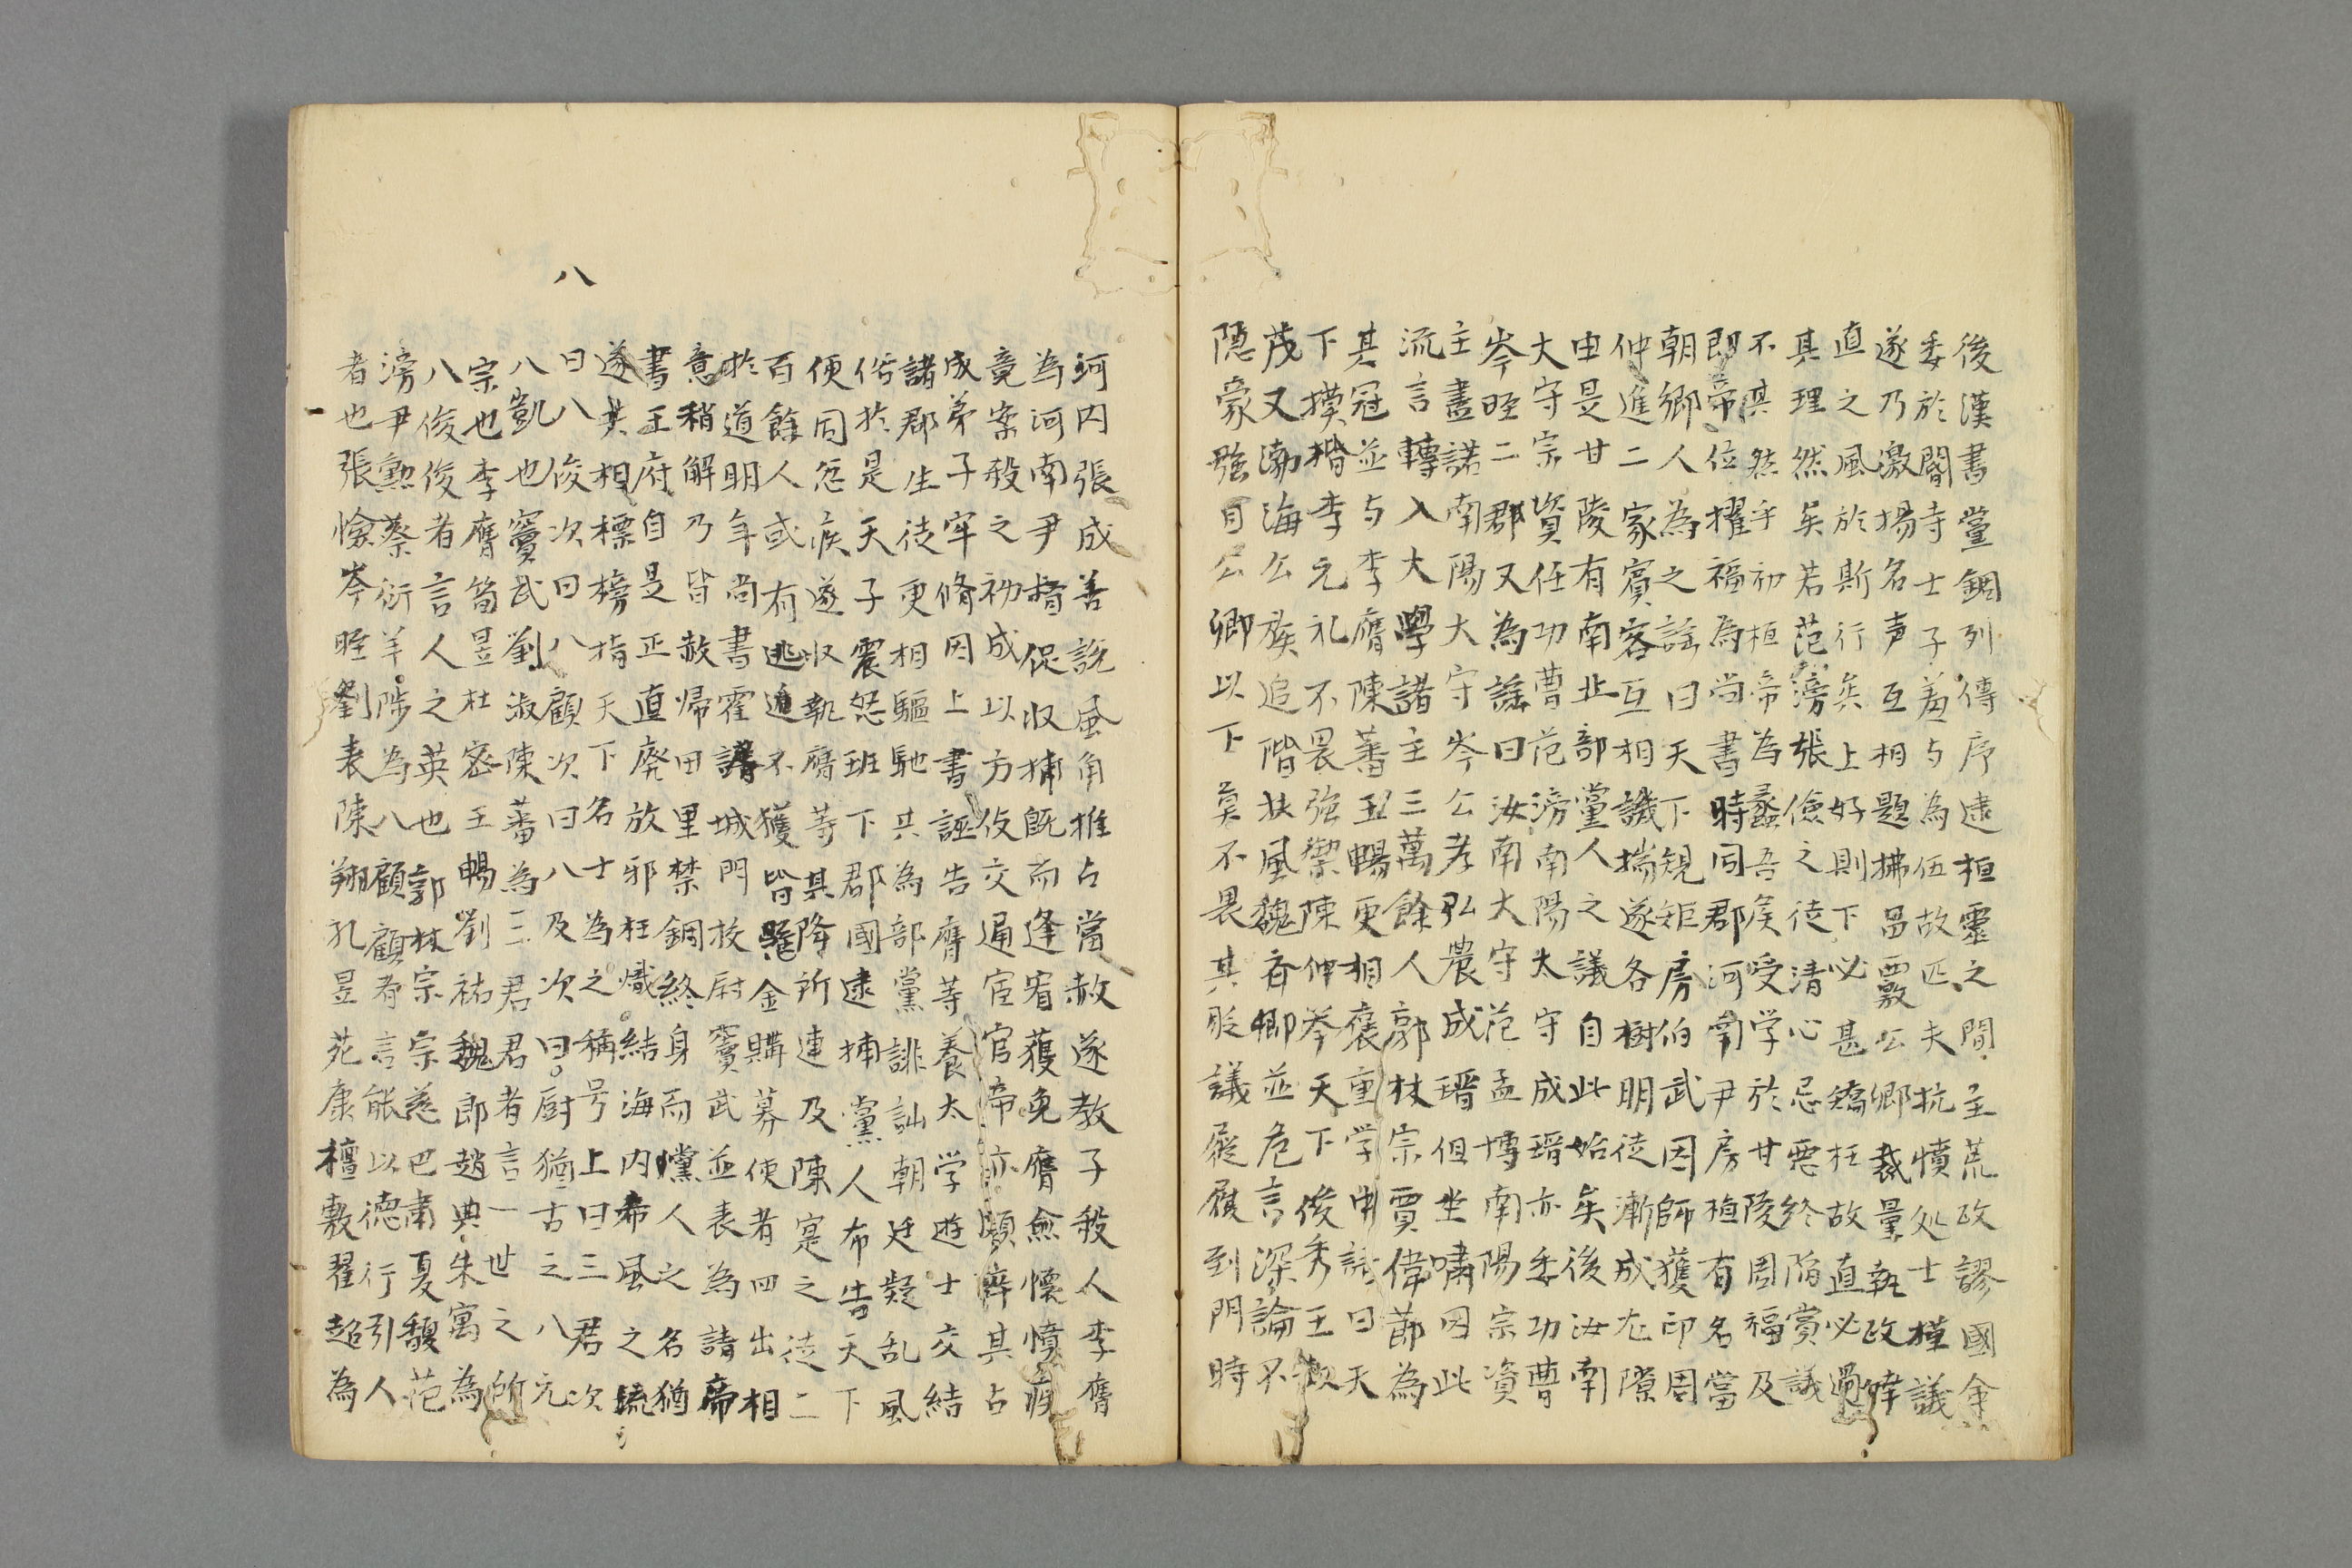 後漢書黨錮列傳序逮桓靈之間主荒政謬國命
委於閹寺士子羞与為伍故匹夫抗憤処士橫議
遂乃激揚名声互相題拂品覈公卿裁量執政婞
直之風於斯行矣上好則下必甚矯枉故直必過
其理然矣若范滂張儉之徒清心忌悪終陷党議
不其然乎初桓帝為蠡吾侯受学於甘陵周福及
即帝位擢福為尚書時同郡河南尹房植有名當
朝鄉人為之謠曰天下規矩房伯武因師獲印周
仲進二家賓客互相譏揣遂各樹朋徒漸成尤隙
由是甘陵有南北部黨人之議自此始矣後汝南
大守宗資任功曹范滂南陽太守成瑨亦委功曹
岑晊二郡又為謠曰汝南大守范孟博南陽宗資
主畫諾南陽大守岑公孝弘農成瑨但坐嘯因此
流言轉入大學諸主三萬餘人郭林宗賈偉節為
其冠並与李膺陳蕃王暢更相褒重学中語曰天
下摸楷李元礼不畏強禦陳仲挙天下俊秀王叔
茂又渤海公族追階扶風魏斉卿並危言深論不
隱豪強自公卿以下莫不畏其貶議屣履到門時
河内張成善說風角推占當赦遂教子殺人李膺
為河南尹督促収捕既而逢宥獲免膺愈懷憤疾
竟案殺之初成以方伎交通宦官帝亦頗誶其占
成弟子牢脩因上書誣告膺等養太学遊士交結
諸郡生徒更相驅馳共為部黨誹訕朝廷疑乱風
俗於是天子震怒班下郡國逮捕黨人布告天下
使同忿疾遂収執膺等其降所連及陳寔之徒二
百餘人或有逃遁不獲皆懸金購募使者四出相
於道明年尚書霍諝城門校尉竇武並表為請帝
意稍解乃皆赦帰田里禁錮終身而黨人之名猶
書王府自是正直廃放邪枉熾結海内希風之流
遂共相標榜指天下名士為之稱号上曰三君次
曰八俊次曰八顧次曰八及次曰厨猶古之八元
八凱也竇武劉淑陳蕃為三君君者言一世之所
宗也李膺荀昱杜密王暢劉祐魏郎趙典朱寓為
八俊俊者言人之英也郭林宗宗慈巴肅夏馥范
滂尹勲蔡衍羊陟為八顧顧者言能以德行引人
者也張儉岑晊劉表陳翔孔昱苑康檀敷翟超為
八